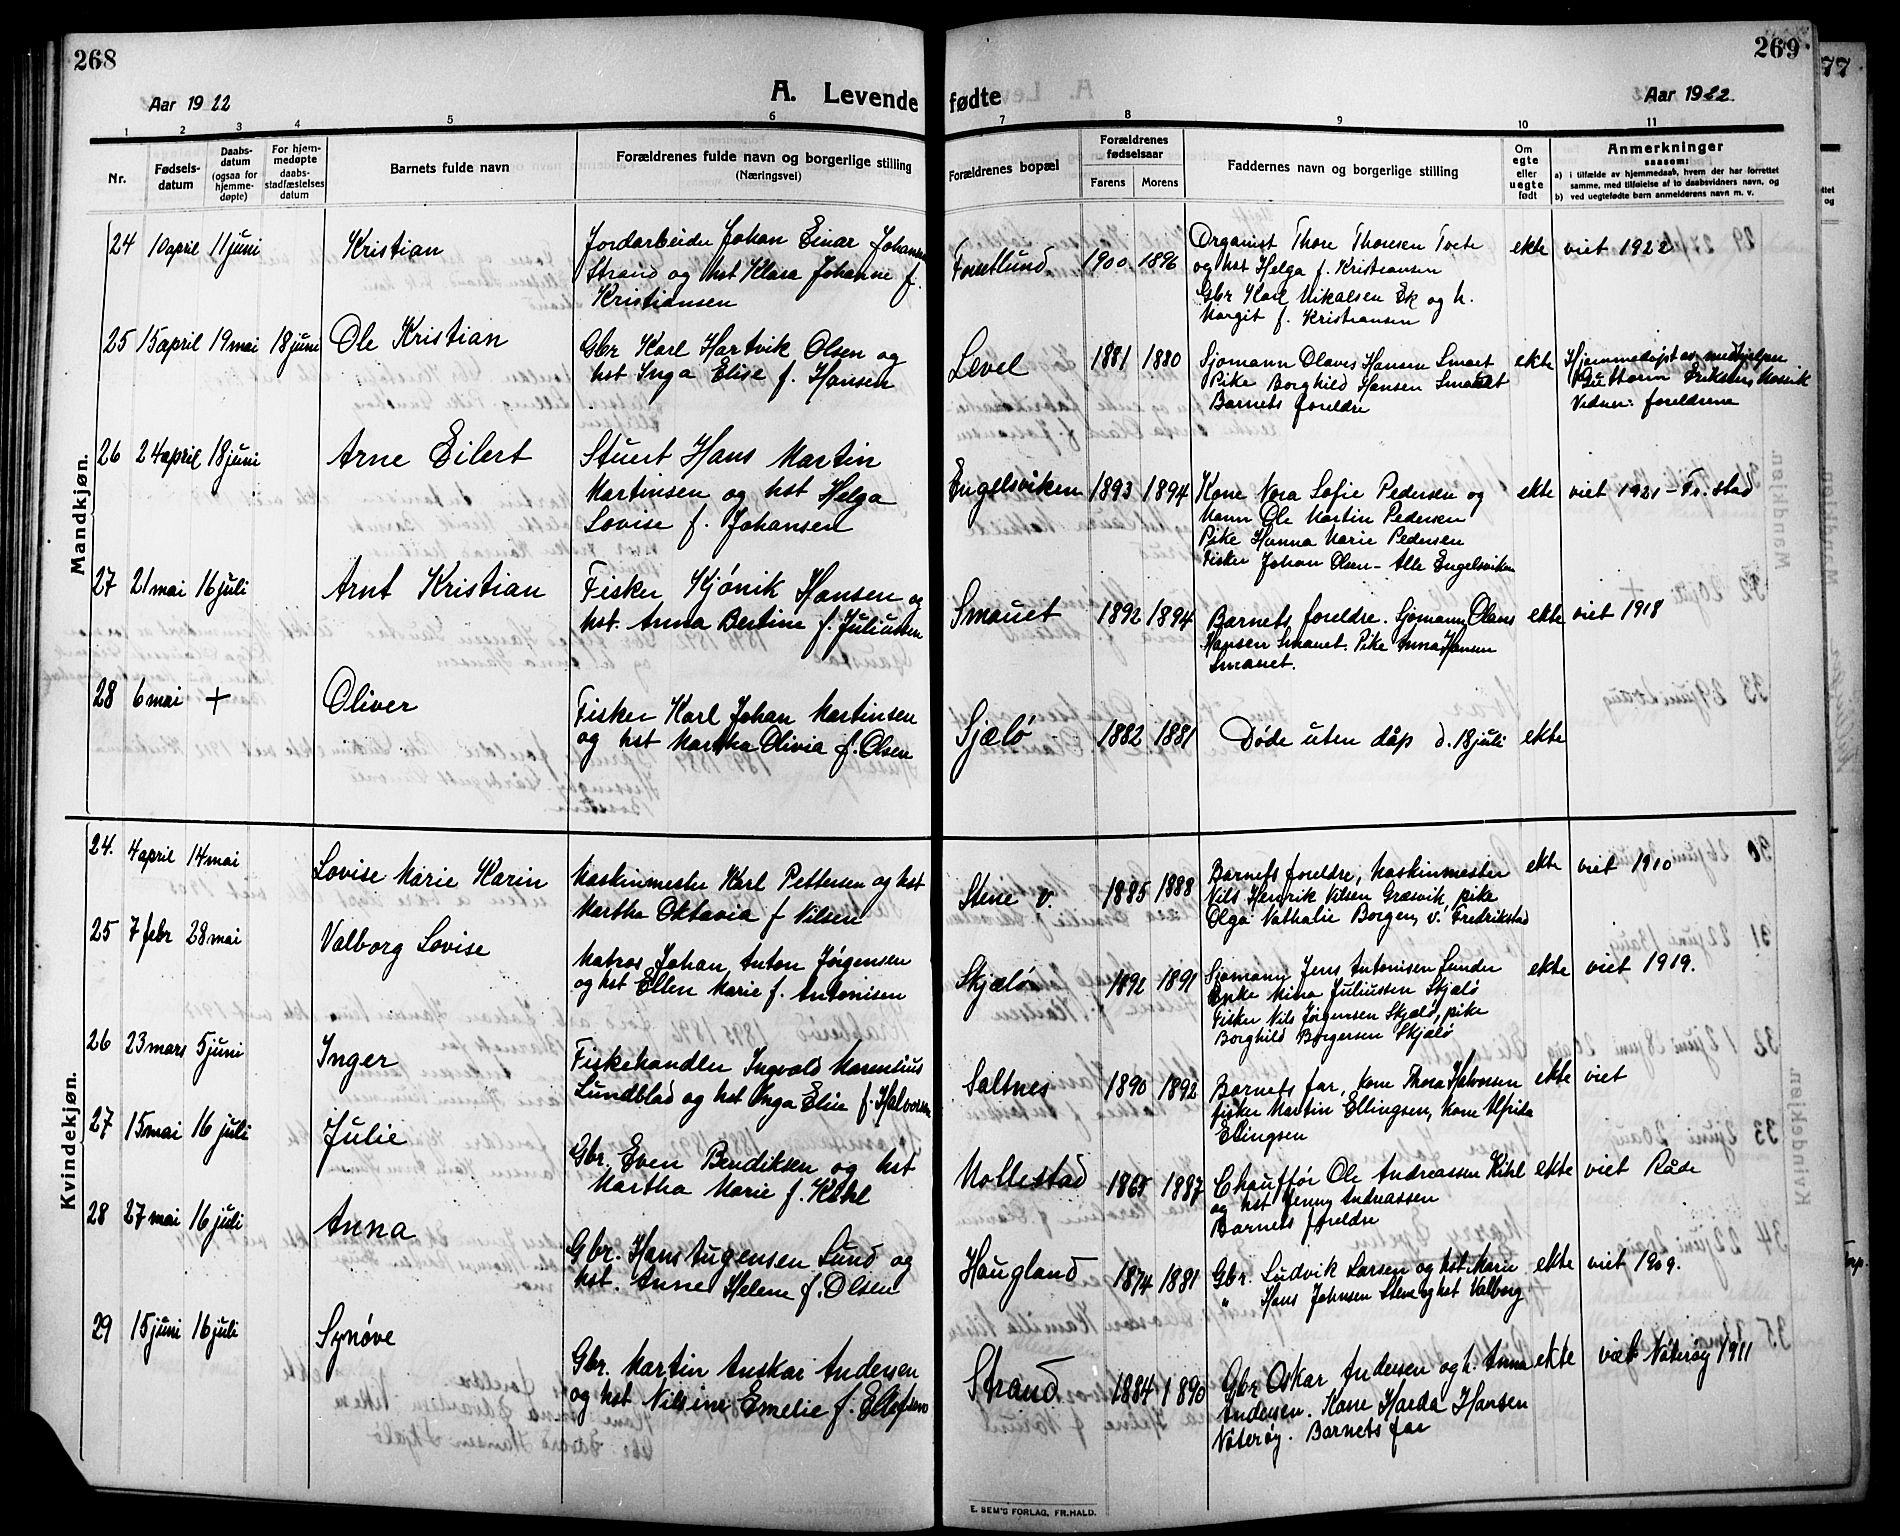 268
Aar 1922
A. Levende
1 2 3 4 5 6
Nr.
Fødsels-
datum
Daabs-
datum
(ogsaa for
hjemme-
døpte)
For hjem-
medøpte
daabs-
stadfæstelses
datum
Barnets fulde navn
Forældrenes fulde navn og borgerlige stilling
(Næringsvei)
Mandkjøn.
24 10 april 11 juni Kristian
Jordarbeider Johan Einar
Strand og hst Klara Johanne f.
Kristiansen
25 15 april 19 mai 18 juni Ole Kristian
Gbr Karl Hartvik Olsen og
hst Inga Elise f. Hansen
26 24 april 18 juni Arne Eilert
Stuert Hans Martin
Martinsen og hst Helga
Lovise f. Johansen
27 21 mai 16 juli Arnt Kristian
Fisker Kjønik Hansen og
hst. Anna Bertine f. Juliussen
28 6 mai + Oliver
Fisker Karl Johan Martinsen
og hst Martha Olivia f. Olsen
Kvindekjøn.
24. 4 april 14 mai Lovise Marie Karin
Maskinmester Karl Pettersen og hst
Martha Oktavia f Nilsen
25 7 febr 28 mai Valborg Lovise
Matros Johan Anton Jörgensen
og hst Ellen Marie f. Antonisen
26 23 mars 5 juni Inger
Fiskehandler Ingvald Marentius
Lundblad og hst Inga Elin f. Halvorsen
27 15 mai 16 juli Julie
Gbr. Even Bendiksen og hst
Martha Marie f. Kihl
28 27 mai 16 juli Anna
Gbr. Hans Lund og
hst. Anne Helene f. Olsen
29 15 juni 16 juli Synøve
Gbr. Martin Anskar Andersen
og hst Nilsine Emelie f.
269
fødte
Aar 1922.
7 8 9 10 11
Forældrenes bopæl
Forældrenes
fødselsaar
Farens Morens
Faddernes navn og borgerlige stilling
Om
egte
eller
uegte
født
Anmerkninger
saasom:
a) i tilfælde av hjemmedaab, hvem der har forrettet
samme, med tilføielse af to daabsvidners navn, og
b) ved uegtefødte barn anmelderens navn m. v.
1900 1896
Organist Thore Thoresen Tvete
og hst Helga f. Kristiansen
Gbr Karl Nikalsen Ek og h.
Margit f. Kristiansen
ekte viet 1922
Level 1881 1880
Sjømann Olaves Hansen Smaet
Pike Borghild Hansen Smauet
Barnets foreldre
ekte
Hjemmedøpt av medhjelper
Guttorm Eriksen,
Vidner: foreldrene
Engelsviken 1893 1894
Kone Nora Sofie Pedersen og
Mann Ole Martin Pedersen
Pike Hanna Marie Pedersen
Fisker Johan Olsen - Alle Engelsviken
ekte viet 1921 - Fr.stad
Smauet 1892 1894
Barnets foreldre. Sjømann Olaus
Hansen Smauet. Pike Anna Hansen
Smauet.
ekte viet 1918
Sjælö 1882 1881
Døde uten dåp d. 18 juli ekte
Stene v. 1885 1888
Barnets foreldre, Maskinmester
Nils Henrik Nilsen Græsvik, pike
Olga Nathalie Borgen, v. Fredrikstad
ekte viet 1910
Skjælön 1892 1891
Sjømann Jens Antonisen Lunder
Enke Mina Juliussen Skjælö
Fisker Nils Jørgensen Skjælø, pike
Borghild Börgersen Skjælø
ekte viet 1919.
Saltnes 1890 1892
Barnets far, kone Thora Halvorsen
fisker Martin Ellingsen, kone Alfrida
Ellingsen
ekte viet
Mollestad 1887
Chauffør Ole Andreassen Kihl
og hst Jenny Andreassen
Barnets foreldre
ekte viet Råde
Haugland 1874 1881
Gbr. Ludvik Larsen og hst Marie
" Hans Johnsen Stene og hst Valborg
ekte viet 1909.
Strand 1884 1890
Gbr Oskar Andersen og h. Anna
Andersen. Kone Harda Hansen
Nøterøy. Barnets far
ekte viet Nøterøy 1911
E. SEM'S FORLAG, FR.HALD.
77